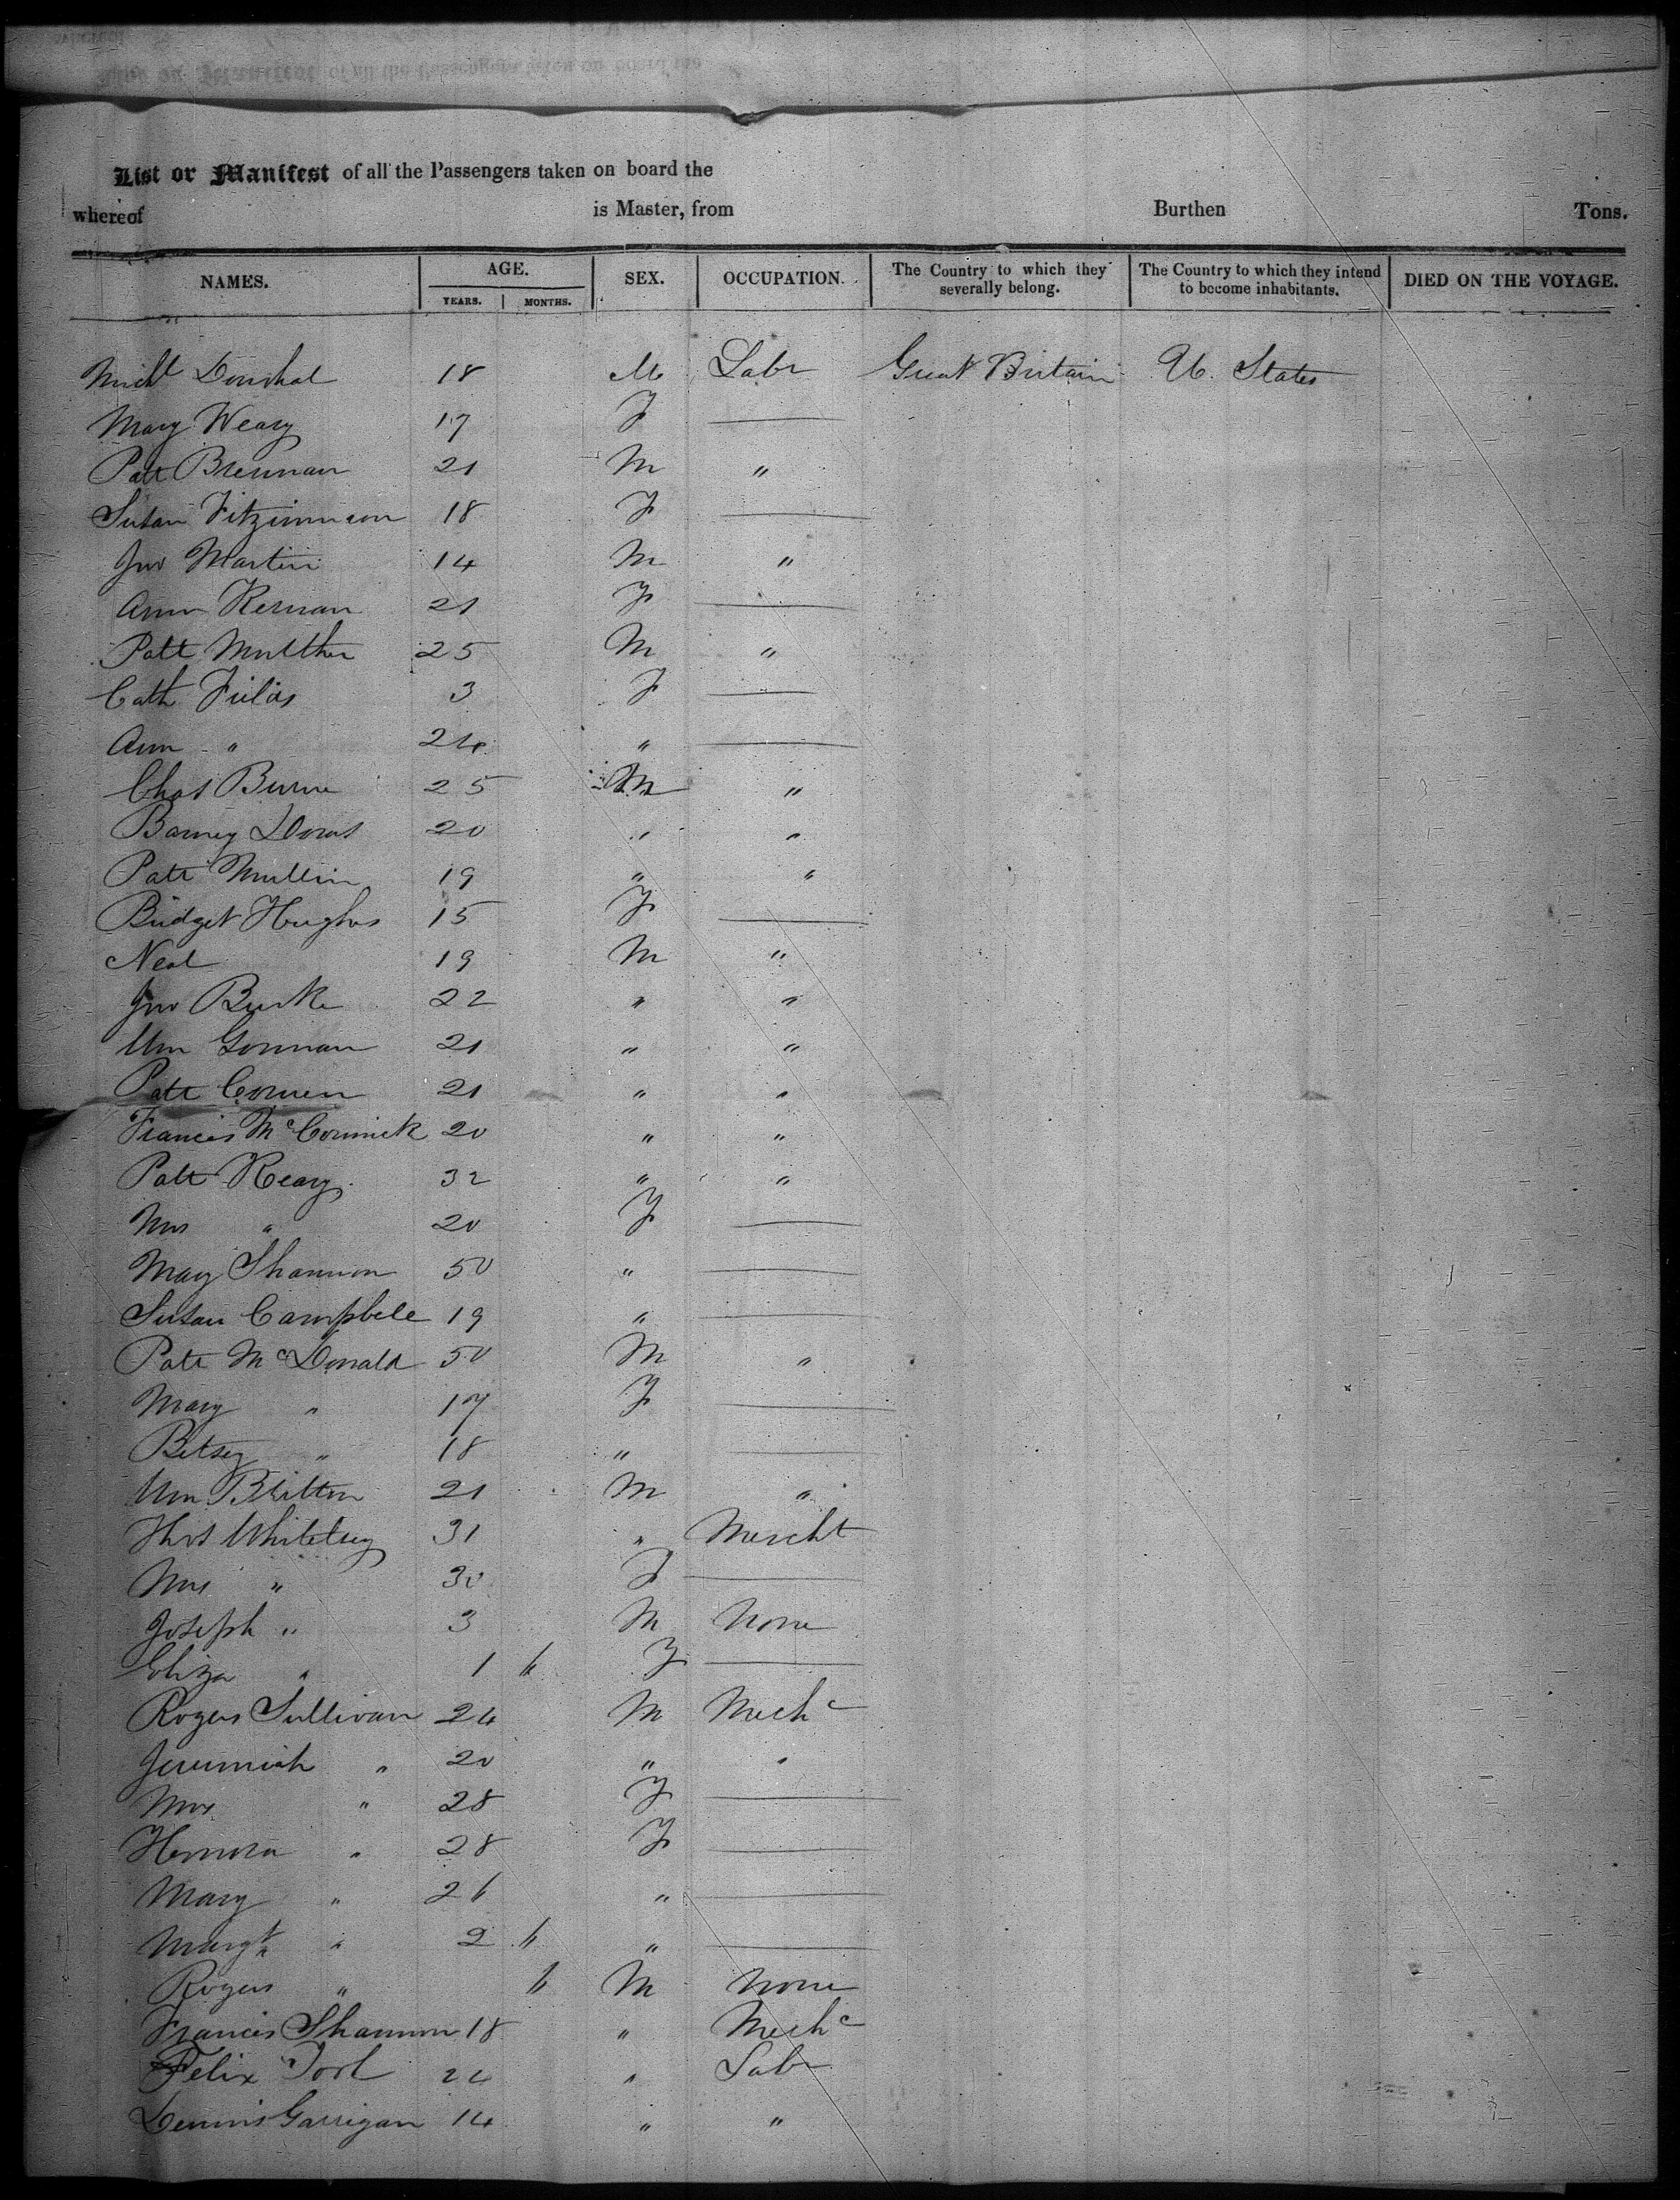 List or Manifest of all the Passengers taken on board the
whereof is Master, from Burthen Tons.
NAMES. AGE. SEX. OCCUPATION. The Country to which they severally belong. The Country to which they intend to become inhabitants. DIED ON THE VOYAGE.
YEARS. MONTHS.
Michl 18 M Labr Great Britain U. States
Mary Weary 17 F —
Patt Brennan 21 M "
Susan Fitzimmon 18 F —
Jno Martin 14 M "
Ann Kernan 21 F —
Patt 25 M "
Cath 3 F —
Ann " 24 " —
Chas Burne 25 M "
Barney 20 " "
Patt Mullin 19 " "
Bridget Hughes 15 F —
Neal 19 M "
Jno Burke 22 " "
Wm Gorman 21 " "
Patt 21 " "
Francis McCormick 20 " "
Patt Keary 32 " "
Mrs " 20 F —
Mary Shannon 50 " —
Susan Campbell 19 " —
Patt McDonald 50 M "
Mary " 17 F —
Betsey " 18 " —
Wm Britton 21 M "
Thos 31 " Mercht
Mrs " 30 F —
Joseph " 3 M None
Eliza " 1 6 F —
Rogers Sullivan 24 M Mechc
Jeremiah " 20 " "
Mrs " 28 F —
Honora " 28 F —
Mary " 26 " —
Margt " 2 6 " —
Rogers " 6 M None
Francis Shannon 18 " Mechc
Felix 24 " Labr
Dennis Garrigan 14 " "